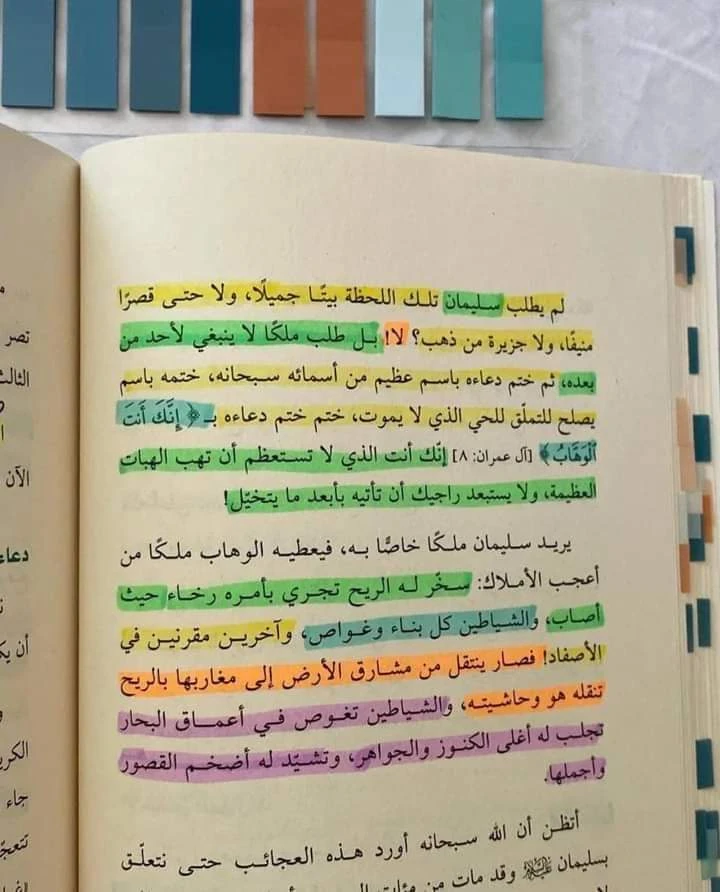 لم يطلب سليمان تلك اللحظة بيتًا جميلًا، ولا حتى قصرًا
منيفًا، ولا جزيرة من ذهب؟ لا! بل طلب ملكًا لا ينبغي لأحد من
بعده، ثم ختم دعاءه باسم عظيم من أسمائه سبحانه، ختمه باسم
يصلح للتملّق للحي الذي لا يموت، ختم ختم دعاءه بـ ﴿إِنَّكَ أَنتَ
ٱلْوَهَّابُ﴾ [آل عمران: ٨] إنّك أنت الذي لا تستعظم أن تهب الهبات
العظيمة، ولا يستبعد راجيك أن تأتيه بأبعد ما يتخيّل!
يريد سليمان ملكًا خاصًّا به، فيعطيه الوهاب ملكًا من
أعجب الأملاك: سخّر له الريح تجري بأمره رخاء حيث
أصاب، والشياطين كل بناء وغواص، وآخرين مقرنين في
الأصفاد! فصار ينتقل من مشارق الأرض إلى مغاربها بالريح
تنقله هو وحاشيته، والشياطين تغوص في أعماق البحار
تجلب له أغلى الكنوز والجواهر، وتشيّد له أضخم القصور
وأجملها.
أتظن أن الله سبحانه أورد هذه العجائب حتى نتعلّق
بسليمان ﷺ وقد مات من مئات
تصر
الآن
دعاء
جاء